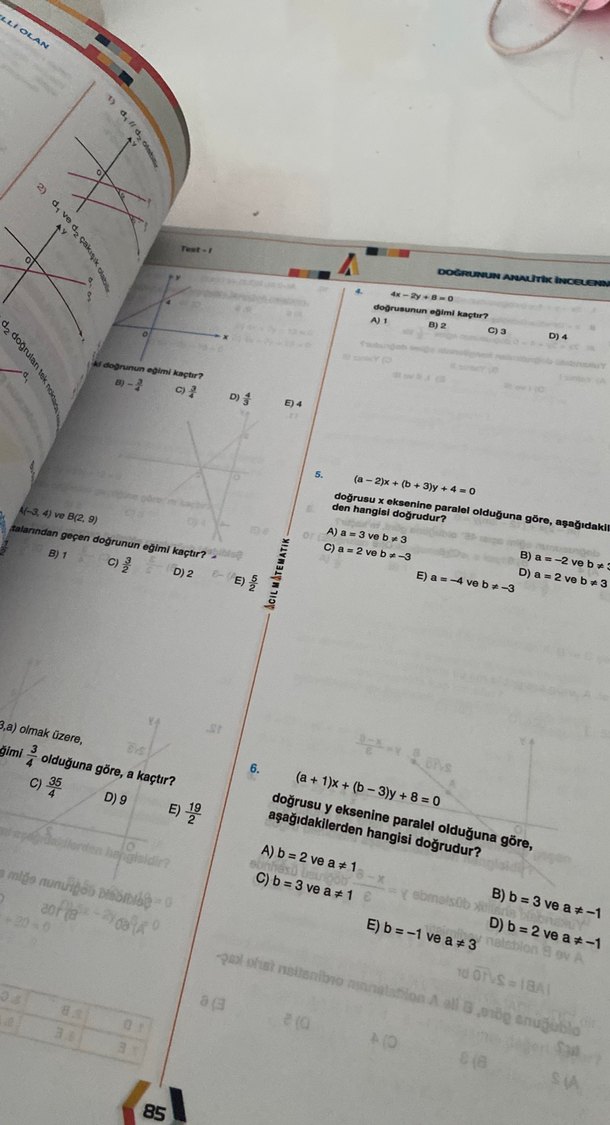 LLİ OLAN
1) d₁ // d₂ olabilir.
2) d₁ ve d₂ çakışık olabilir.
d₂ doğruları tek noktada
Test - I
DOĞRUNUN ANALİTİK İNCELENM
ki doğrunun eğimi kaçtır?
B) -3/4 C) 3/4 D) 4/3 E) 4
A(-3, 4) ve B(2, 9)
talarından geçen doğrunun eğimi kaçtır?
B) 1 C) 3/2 D) 2 E) 5/2
3,a) olmak üzere,
ğimi 3/4 olduğuna göre, a kaçtır?
C) 35/4 D) 9 E) 19/2
ACIL MATEMATIK
4. 4x - 2y + 8 = 0
doğrusunun eğimi kaçtır?
A) 1 B) 2 C) 3 D) 4
5. (a - 2)x + (b + 3)y + 4 = 0
doğrusu x eksenine paralel olduğuna göre, aşağıdakil
den hangisi doğrudur?
A) a = 3 ve b ≠ 3 B) a = -2 ve b ≠ 3
C) a = 2 ve b ≠ -3 D) a = 2 ve b ≠ 3
E) a = -4 ve b ≠ -3
6. (a + 1)x + (b - 3)y + 8 = 0
doğrusu y eksenine paralel olduğuna göre,
aşağıdakilerden hangisi doğrudur?
A) b = 2 ve a ≠ 1 B) b = 3 ve a ≠ -1
C) b = 3 ve a ≠ 1 D) b = 2 ve a ≠ -1
E) b = -1 ve a ≠ 3
85